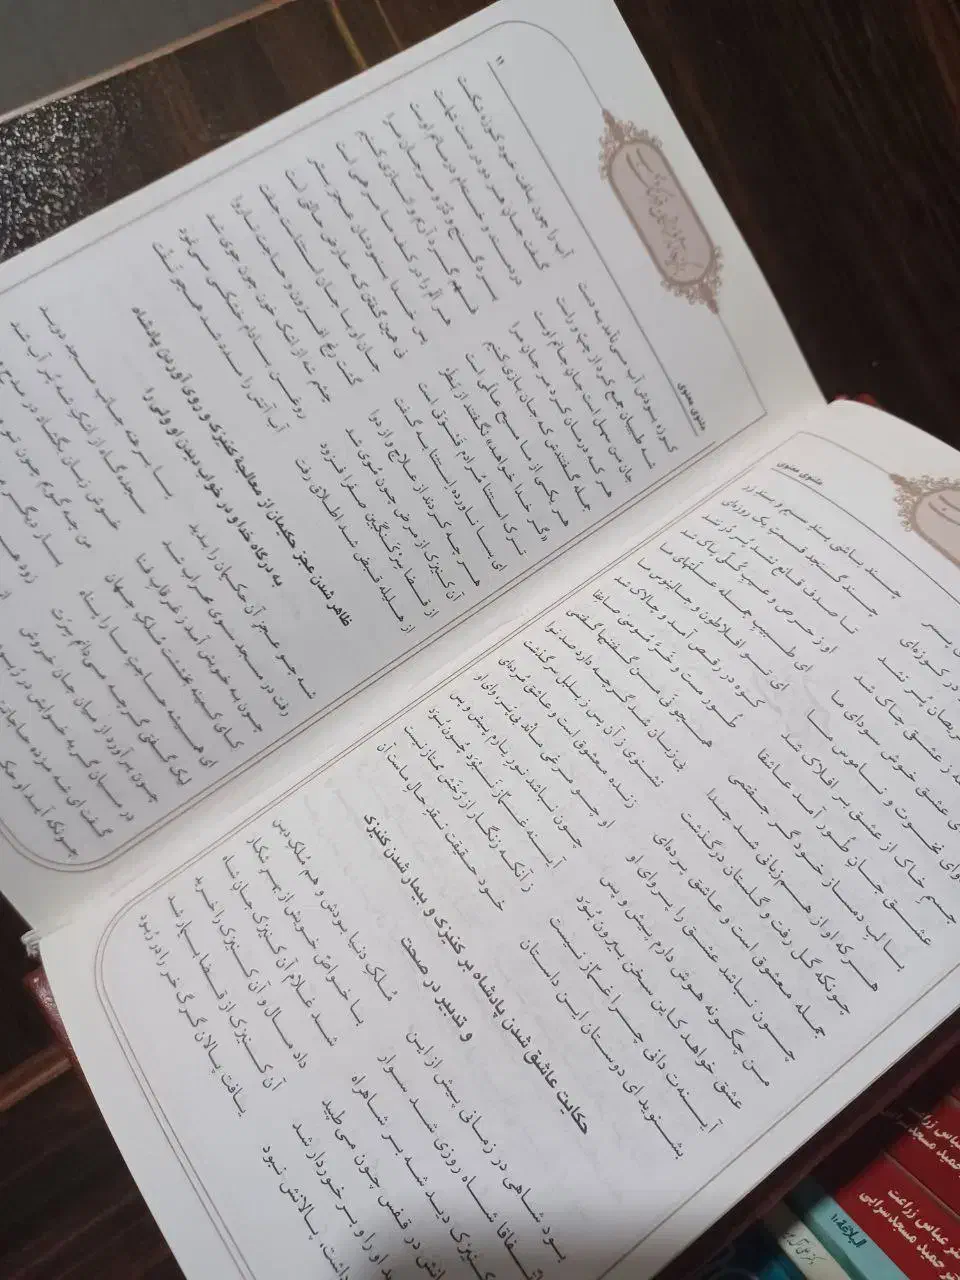 مثنوی معنوی
چند باشی بند سیم و بند زر
در کوزه‌ای چند گنجد قسمت یک روزه‌ای
حریصان پُر نشد تا صدف قانع نشد پُر دُر نشد
ز عشقی چاک شد او ز حرص و عیب کُلّی پاک شد
عشق خوش سودای ما ای طبیب جمله علّتهای ما
نخوت و ناموس ما ای تو افلاطون و جالینوس ما
جسم خاک از عشق بر افلاک شد کوه در رقص آمد و چالاک شد
عشق جان طُور آمد عاشقا طُور مست و خَرَّ مُوسی صاعقا
با لب دمساز خود گر جفتمی همچو نی من گفتنیها گفتمی
هر که او از هم‌زبانی شد جدا بی‌زبان شد گرچه دارد صد نوا
چونکه گل رفت و گلستان درگذشت نشنوی زآن پس ز بلبل سرگذشت
جمله معشوق است و عاشق پرده‌ای زنده معشوق است و عاشق مُرده‌ای
چون نباشد عشق را پروای او او چو مرغی ماند بی‌پر وای او
من چگونه هوش دارم پیش و پس چون نباشد نور یارم پیش و پس
عشق خواهد کاین سخن بیرون بُوَد آینه غمّاز نَبوَد چُون بُوَد
آینه‌ت دانی چرا غمّاز نیست زانکه زنگار از رُخش ممتاز نیست
بشنوید ای دوستان این داستان خود حقیقت نقد حال ماست آن
حکایت عاشق شدن پادشاه بر کنیزی و بیمار شدن کنیزی
و تدبیر در صحت
بود شاهی در زمانی پیش از این مُلک دنیا بودش و هم مُلک دین
شاه روزی شد سوار با خواصّ خویش از بهر شکار
کنیزکی دید شه بر شاهراه شد غلام آن کنیزک جان شاه
در قفس چون می‌طپید داد مال و آن کنیزک را خرید
او را و برخوردار شد آن کنیزک از قضا بیمار شد
داشت، پالانش نبود یافت پالان گرگ خر را در رُبود
مثنوی معنوی ۱۱
کوزه بودش آب می‌نآمد به دست آب را چون یافت خود کوزه شکست
شه طبیبان جمع کرد از چپ و راست گفت جانِ هر دو در دست شماست
جان من سهل است جانِ جانم اوست دردمند و خسته‌ام درمانم اوست
هر که درمان کرد مر جان مرا بُرد گنج و دُرّ و مرجان مرا
جمله گفتندش که جان‌بازی کنیم فهم گرد آریم و انبازی کنیم
هر یکی از ما مسیح عالمی است هر الم را در کف ما مرهمی است
«گر خدا خواهد» نگفتند از بَطَر پس خدا بنمودشان عجز بشر
ترک استثنا مُرادم قسوتی است نی همین گفتن که عارض حالتی است
ای بسا ناورده استثنا به گفت جان او با جان استثناست جفت
هر چه کردند از علاج و از دوا گشت رنج افزون و حاجت ناروا
آن کنیزک از مرض چون مُوی شد چشم شه از اشک خون چون جُوی شد
از قضا سرکنگبین صفرا فزود روغن بادام خشکی می‌نمود
از هلیله قبض شد اطلاق رفت آب آتش را مدد شد همچو نفت
ظاهر شدن عجز حکیمان از معالجهٔ کنیزی و روی آوردن پادشاه
به درگاه خدا و در خواب دیدن او ولی را
شه چو عجز آن حکیمان را بدید پا برهنه جانب مسجد دوید
رفت در مسجد سوی محراب شد سجده‌گاه از اشک شه پُر آب شد
چون به خویش آمد ز غرقاب فنا خوش زبان بگشاد در مدح و
کای کمینه بخششت مُلک جهان من چه گویم چون تو
ای همیشه حاجت ما را پناه بار دیگر
لیک گفتی گرچه می‌دانم سِرت زود هم
چون برآورد از میان جان خروش
در میان گریه خوابش در رُبود
گفت ای شه مژده حاجاتت
چونکه آید او حکیم
البلاغة ۱۰
عباس زراعت
حمید مسجدسرایی